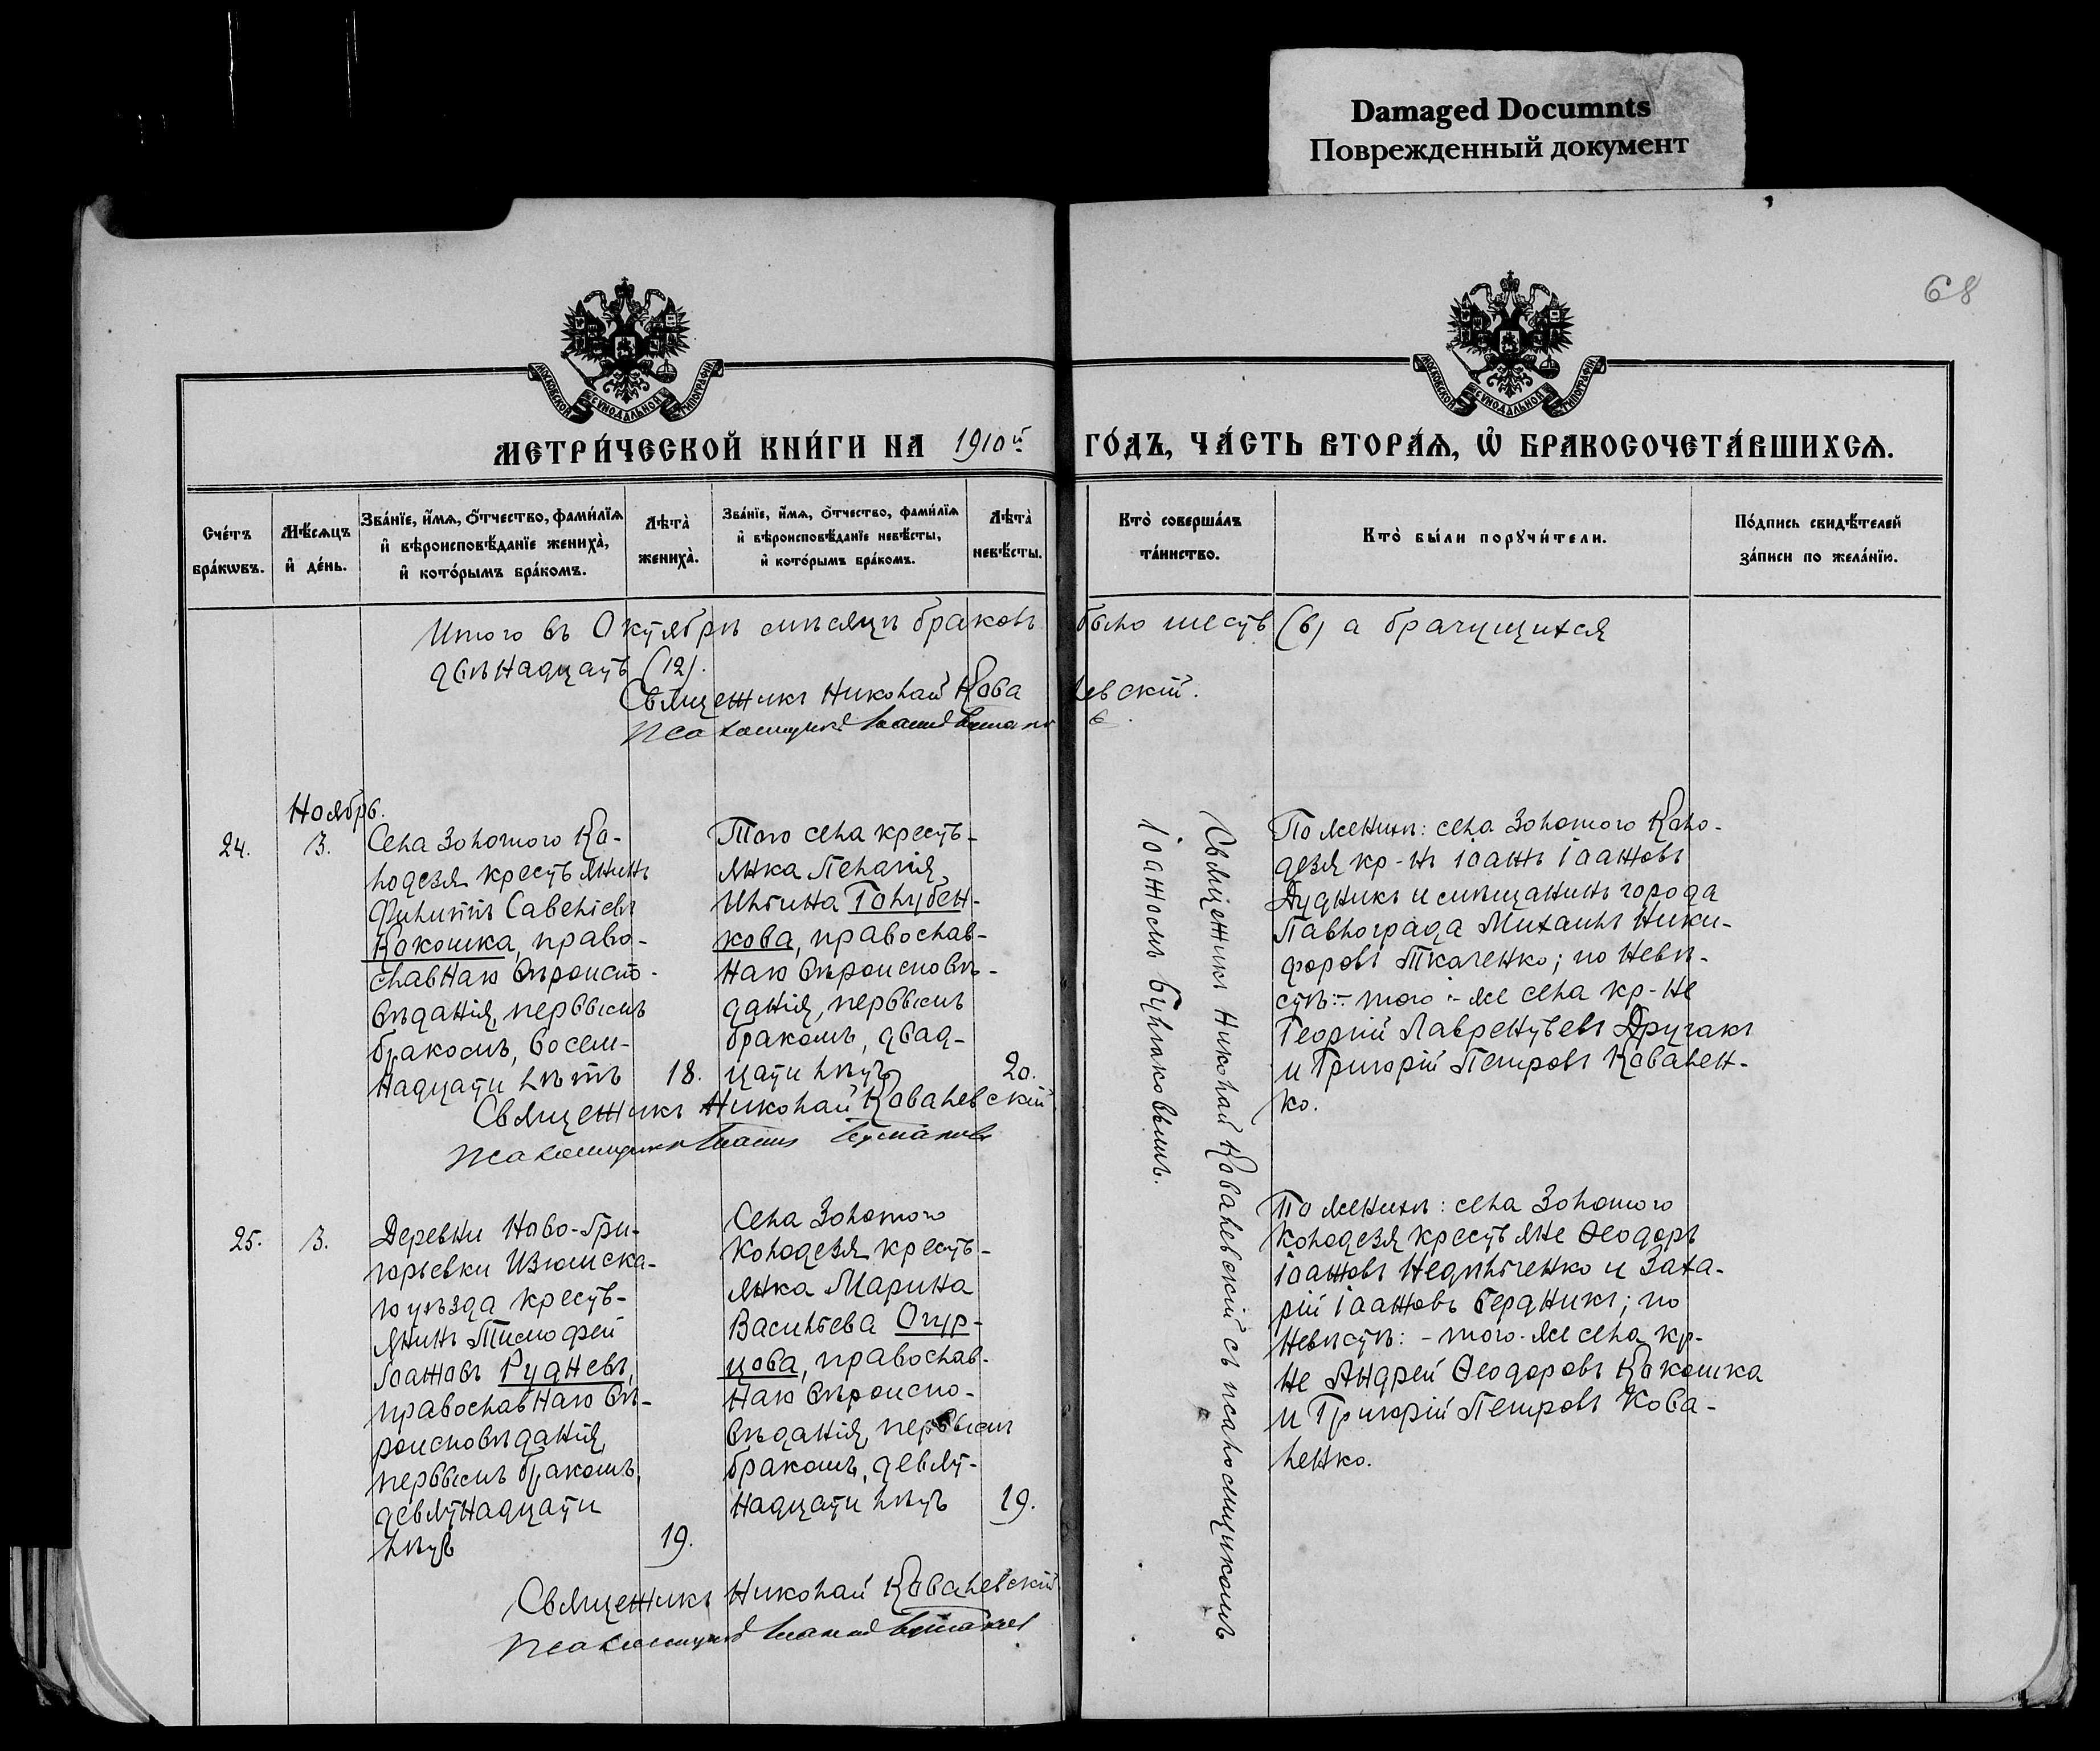 Damaged Documnts
Поврежденный документ
68
МОСКОВСКОЙ СѴНОДАЛЬНОЙ ТИПОГРАФІИ
МОСКОВСКОЙ СѴНОДАЛЬНОЙ ТИПОГРАФІИ
МЕТРИ́ЧЕСКОЙ КНИ́ГИ НА 1910й ГО́ДЪ, ЧА́СТЬ ВТОРА́Ѧ, Ѡ҆ БРАКОСОЧЕТА́ВШИХСѦ.
Сче́тъ
бра́кѡвъ.
Мѣ́сѧцъ
и҆ де́нь.
Зва́нїе, и҆́мѧ, ѻ҆́тчество, фами́лїѧ
и҆ вѣроисповѣ́данїе жениха̀,
и҆ кото́рымъ бра́комъ.
Лѣта̀
жениха̀.
Зва́нїе, и҆́мѧ, ѻ҆́тчество, фами́лїѧ
и҆ вѣроисповѣ́данїе невѣ́сты,
и҆ кото́рымъ бра́комъ.
Лѣта̀
невѣ́сты.
Кто̀ соверша́лъ
та́инство.
Кто̀ бы́ли порꙋчи́тели.
По́дпись свидѣ́телей
за́писи по жела́нїю.
Итого въ Октябрѣ мѣсяцѣ браковъ было шесть (6) а брачущихся
двѣнадцать (12).
Священникъ Николай Ковалевскій.
Псаломщикъ Іоаннъ
Ноябрь.
24.
3.
Села Золотого Ко-
лодезя крестьянинъ
Филиппъ Савельевъ
Кокошка, право-
славнаго вѣроиспо-
вѣданія, первымъ
бракомъ, восем-
надцати лѣтъ
18.
Того села кресть-
янка Пелагія
Ильина Голубен-
кова, православ-
наго вѣроисповѣ-
данія, первымъ
бракомъ, двад-
цати лѣтъ
20.
Священникъ Николай Ковалевскій
Псаломщикъ Іоаннъ
Священникъ Николай Ковалевскій съ псаломщикомъ
Іоанномъ
По женихѣ: села Золотого Коло-
дезя кр-нъ Іоаннъ Іоанновъ
Дудникъ и мѣщанинъ города
Павлограда Михаилъ Ники-
форовъ Ткаченко; по невѣ-
стѣ:- того-же села кр-не
Георгій Лаврентьевъ Другакъ
и Григорій Петровъ Ковален-
ко.
25.
3.
Деревни Ново-Гри-
горьевки Изюмска-
го уѣзда кресть-
янинъ Тимофей
Іоанновъ Рудневъ,
православнаго вѣ-
роисповѣданія,
первымъ бракомъ,
девятнадцати
лѣтъ
19.
Села Золотого
Колодезя кресть-
янка Марина
Васильева Огур-
цова, православ-
наго вѣроиспо-
вѣданія, первымъ
бракомъ, девят-
надцати лѣтъ
19.
По женихѣ: села Золотого
Колодезя крестьяне Ѳеодоръ
Іоанновъ Недильченко и Заха-
рій Іоанновъ Бердникъ; по
невѣстѣ: - того-же села кр-
не Андрей Ѳеодоровъ Кокошка
и Григорій Петровъ Кова-
ленко.
Священникъ Николай Ковалевскій
Псаломщикъ Іоаннъ